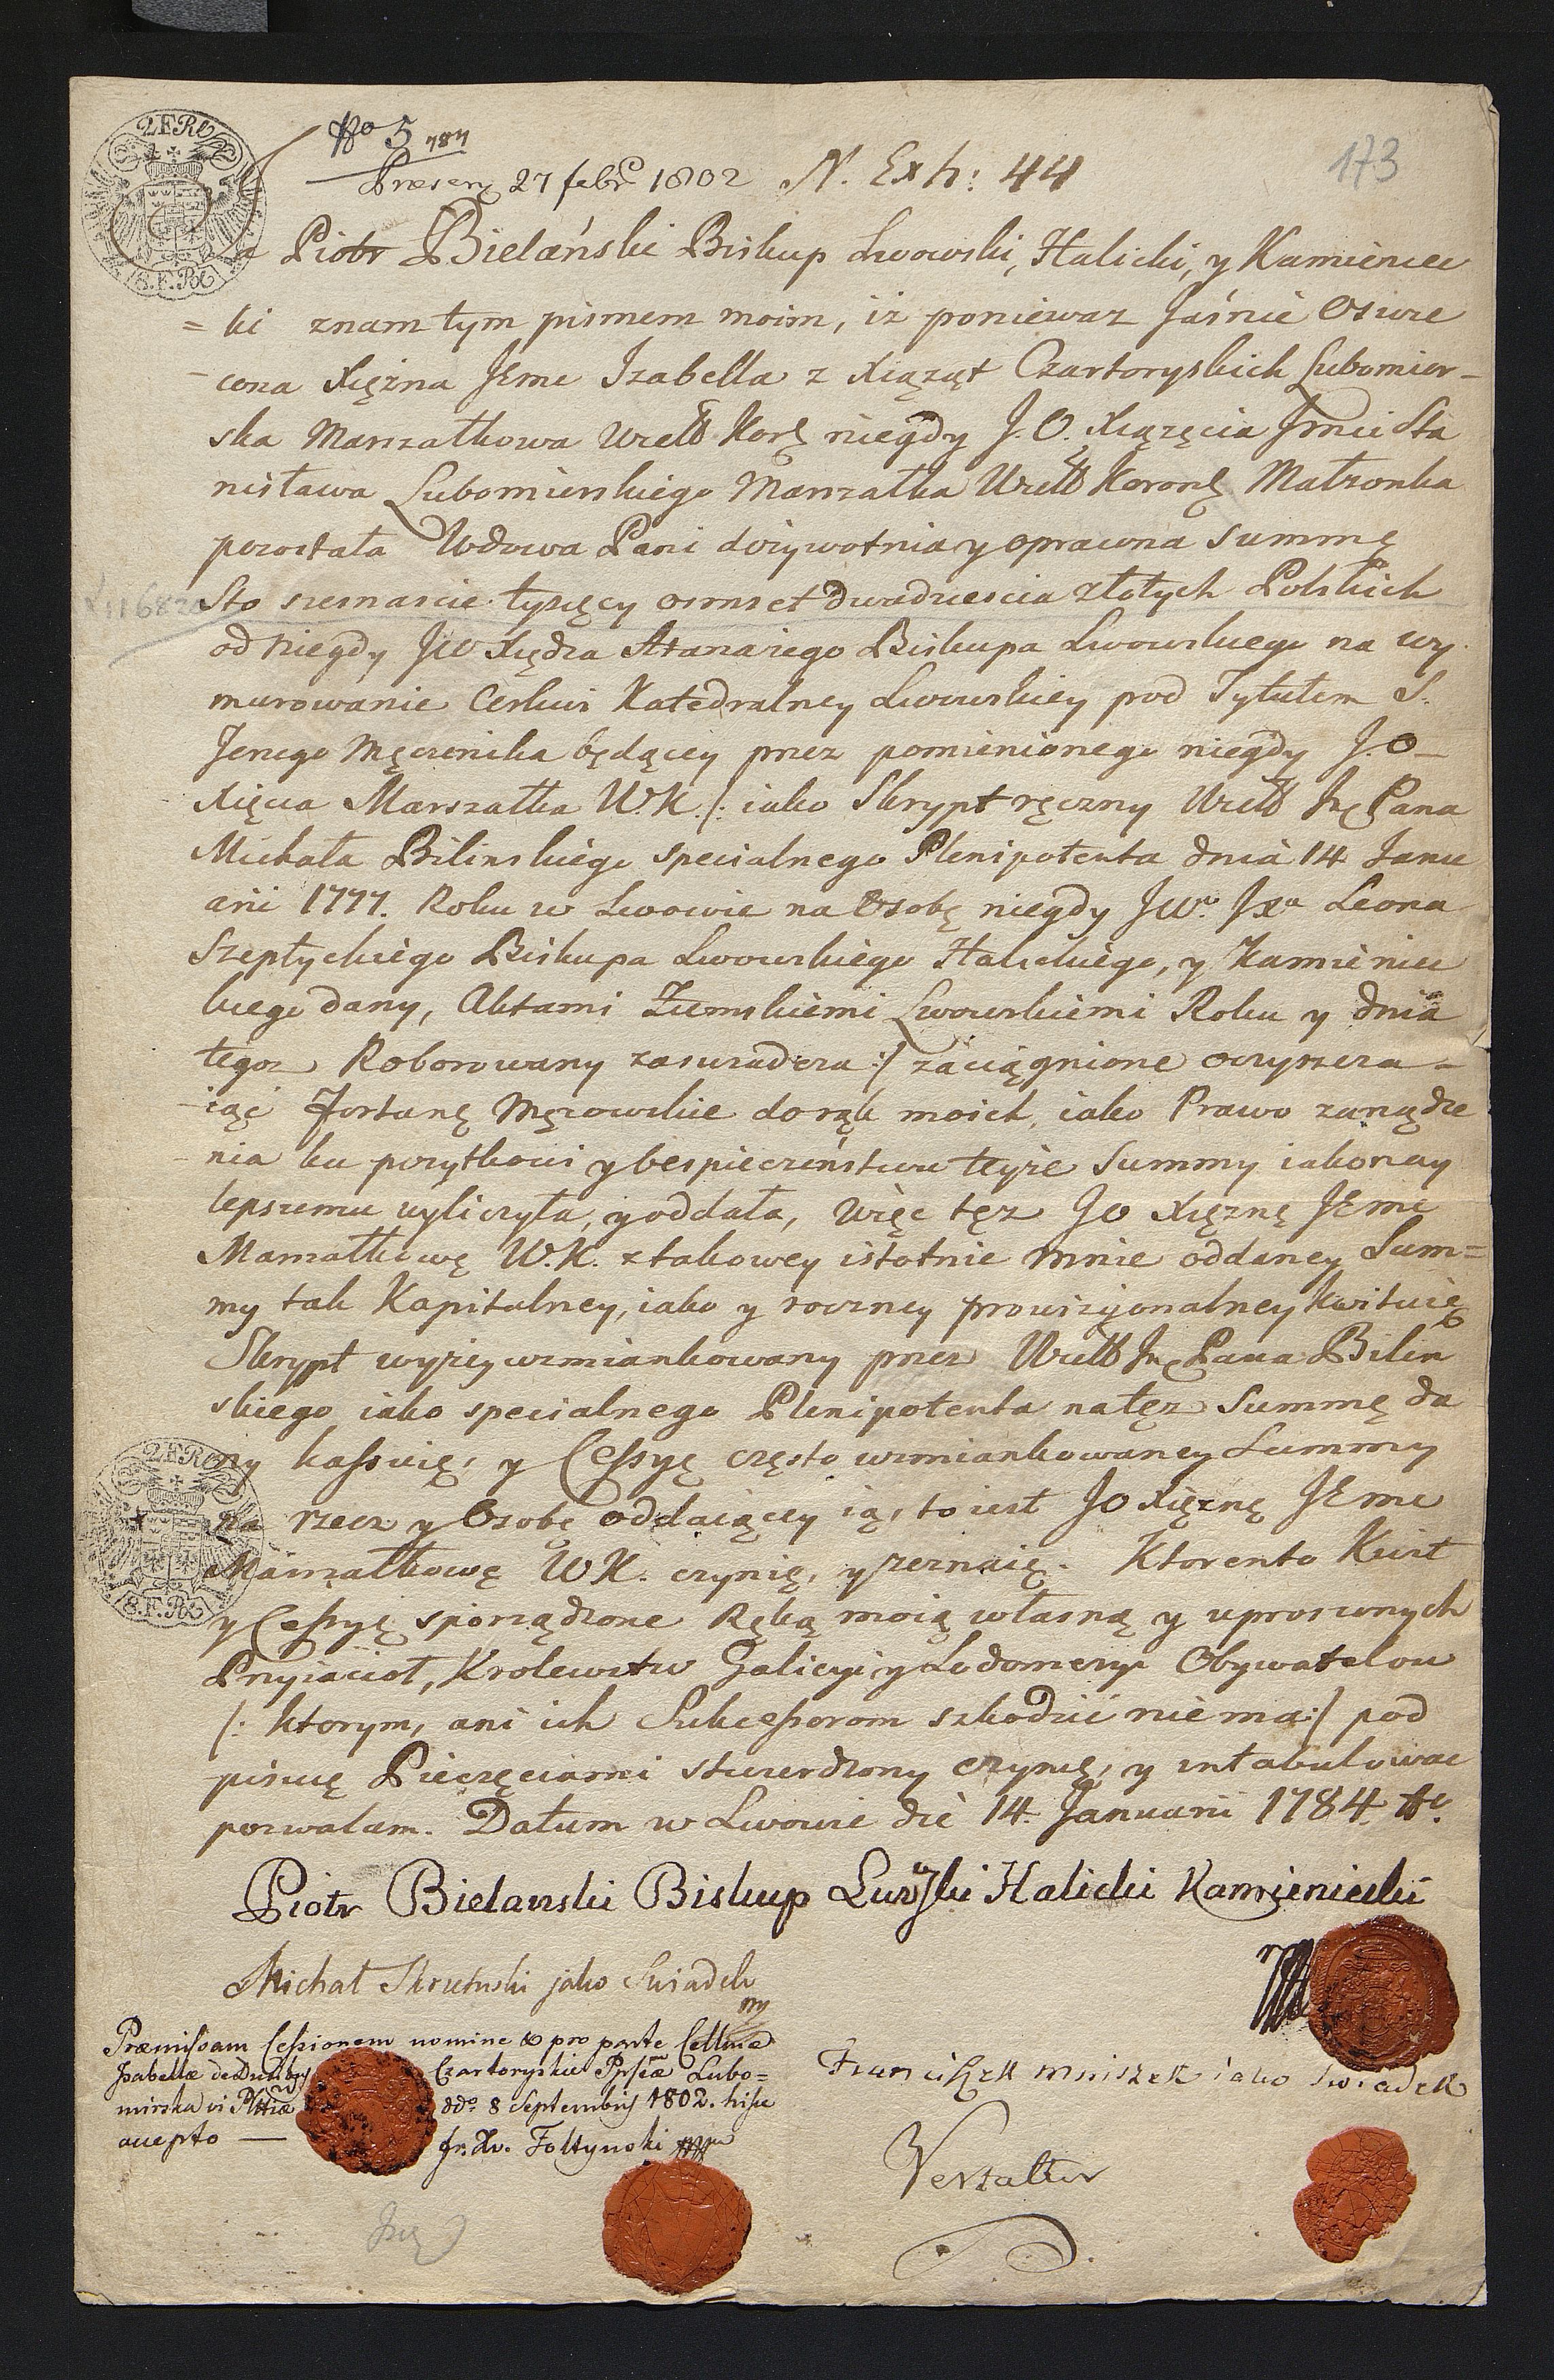 No 5 784
Præsen 27 febr 1802 N. Exh: 44
173
2 F. R. X
8. F. R. X
Ja Piotr Bielański Biskup Lwowski, Halicki, y Kamieniec
= ki znam tym pismem moim, iż poniewaz Jaśnie Oswie
cona Xiężna JEmć Izabella z Xiążąt Czartoryskich Lubomir-
ska Marszałkowa Wielk Kor niegdy J. O. Xiązęcia Jmci Sta
nisława Lubomirskiego Marszałka Wielk Koron Małzonka
pozostała Wdowa Pani dożywotnia y oprawna Summę
116820
Sto szesnascie tysięcy osmset dwadziescia złotych Polskich
od niegdy JW Xiędza Atanazego Biskupa Lwowskiego na wy
murowanie Cerkwi Katedralney Lwowskiey pod Tytułem S.
Jerzego Męczenika będącey przez pomienionego niegdy J. O
Xięcia Marszałka W. K. /: iako Skrypt ręczny Wielo Jmć Pana
Michała Bilinskiego specialnego Plenipotenta dnia 14 Janu
arii 1777. Roku w Lwowie na Osobę niegdy JWo JXa Leona
Szeptyckiego Biskupa Lwowskiego Halickiego, y Kamienic
kiego dany, Aktami Ziemskiemi Lwowskiemi Roku y dnia
tegoz Roborowany zaswiadcza :/ zaciągnione oczyszcza-
iąć Fortunę Mężowskie do rąk moich, iako Prawo zarządze
nia ku pożytkowi y bespieczeństwu teyże Summy iako nay
lepszemu wyliczyła, y oddała, Więc tęz JO Xiężnę JEmć
Marszałkowę W. K. z takowey istotnie mnie oddaney Sum=
my tak Kapitalney, iako y roczney prowizyonalney kwituię
Skrypt wyżey wzmiankowany przez Wielo Jmć Pana Bilin
skiego iako specialnego Plenipotenta na tęz Summę da
ny kassuię, y Cessyę często wzmiankowaney Summy
na rzecz y Osobę oddaiącey ią, to iest JO Xiężnę JEmć
Marszałkowę W K. czynię, y zeznaię. Ktorento Kwit
y Cessyę sporządzone Ręką moią własną y uproszonych
Przyiacioł, Krolewstw Galicyi y Lodomeryi Obywatelow
/: ktorym, ani ich Sukcessorom szkodzić nie ma :/ pod
pisuię Pieczęciami stwierdzony czynię, y intabulowac
pozwalam. Datum w Lwowie die 14. Januarii 1784. Ao.
Piotr Bielanski Biskup Lwowski Halicki Kamieniecki
Michał Skrutuski jako Swiadek
mp
Præmissam Cessionem nomine & pro parte Cellmæ
Isabellæ de Ducibus Czartoryskie Pssæ Lubo=
mirska vi Pltiæ ddo 8 Septembris 1802. hisce
accepto — Fr. Xv. Foltynski mpp
Franciszek Mniszek iako Swiadek
Vertatur